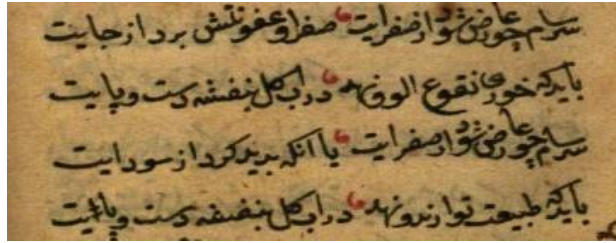 سرسام چو عارض شود از صفرایت صفرا و عفونتش برد از جایت
باید که خوری نقوع الو و نهد در اب کل بنفشه دست و پایت
سرسام چو عارض شود از صفرایت یا انکه بدید کردد از سودایت
باید که طبیعت تو در اب کل بنفشه دست و پایت